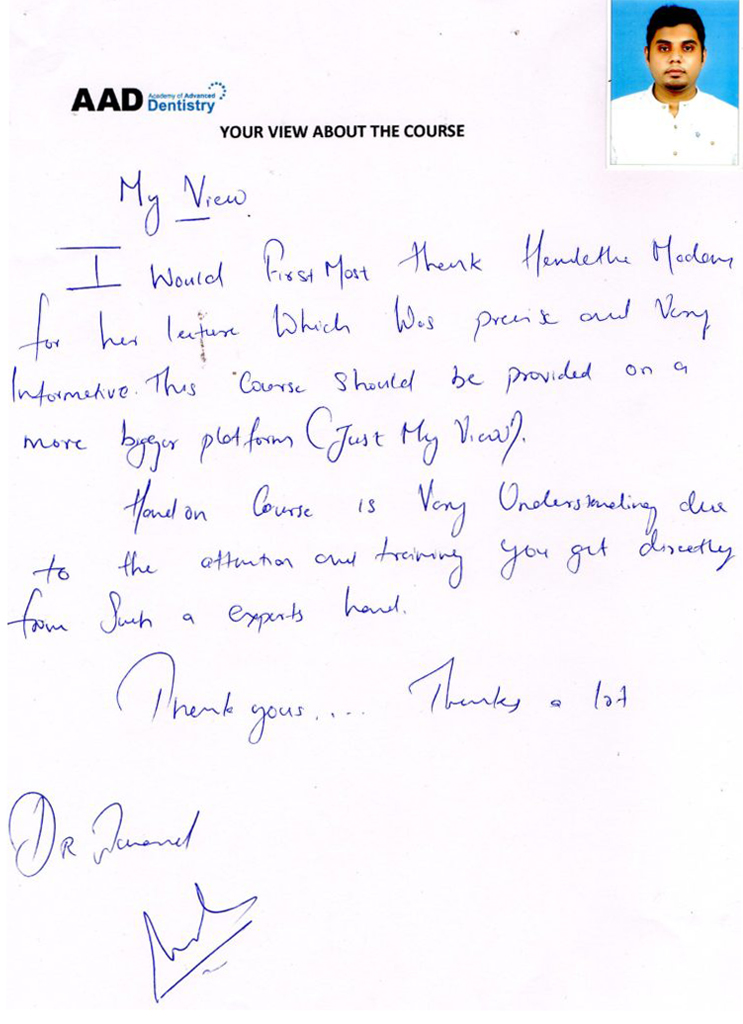 AAD Academy of Advanced Dentistry
YOUR VIEW ABOUT THE COURSE
My View
I Would First Most thank Madam
for her lecture Which Was precise and Very
Informative. This Course Should be provided on a
more bigger platform (Just My View).
Hand on Course is Very Understanding due
to the attention and training you get directly
from Such a experts hand.
Thank you.... Thanks a lot
DR